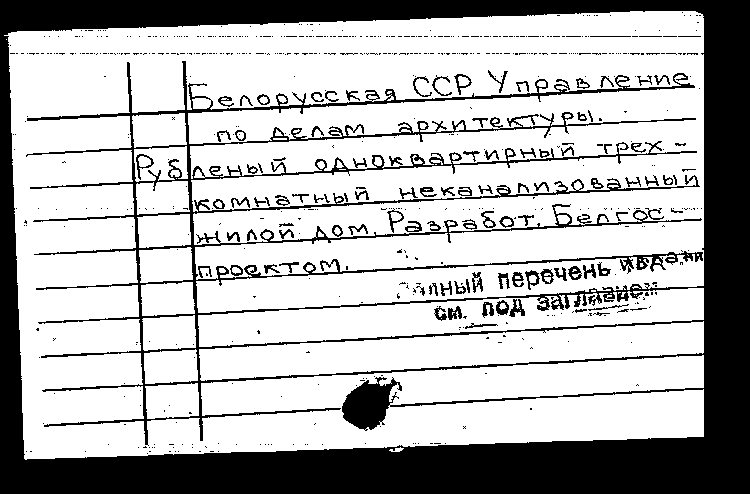 Белорусская ССР. Управление
по делам архитектуры.
Рубленый одноквартирный трех-
комнатный неканализованный
жилой дом. Разработ. Белгос-
проектом.
Полный перечень изданий
см. под заглавием